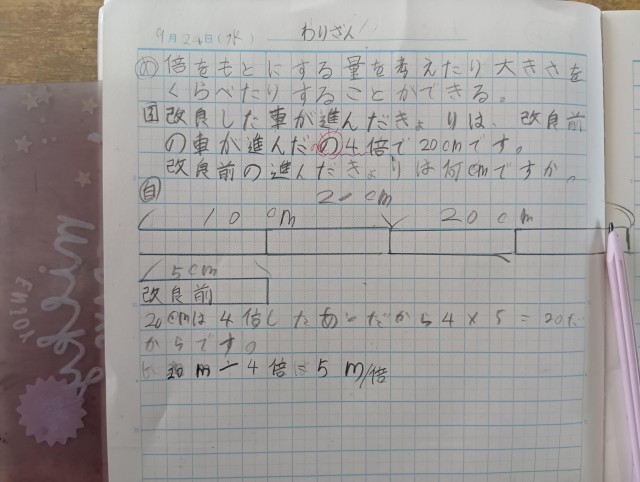 9月24日(水) わりざん
倍をもとにする量を考えたり大きさを
くらべたりすることができる。
改良した車が進んだきょりは、改良前
の車が進んだの4倍で20cmです。
改良前の進んだきょりは何cmですか。
自
10cm 20cm
5cm
改良前
20cmは4倍したあとだから4×5=20だ
からです。
4倍 5m/倍
ENJOY